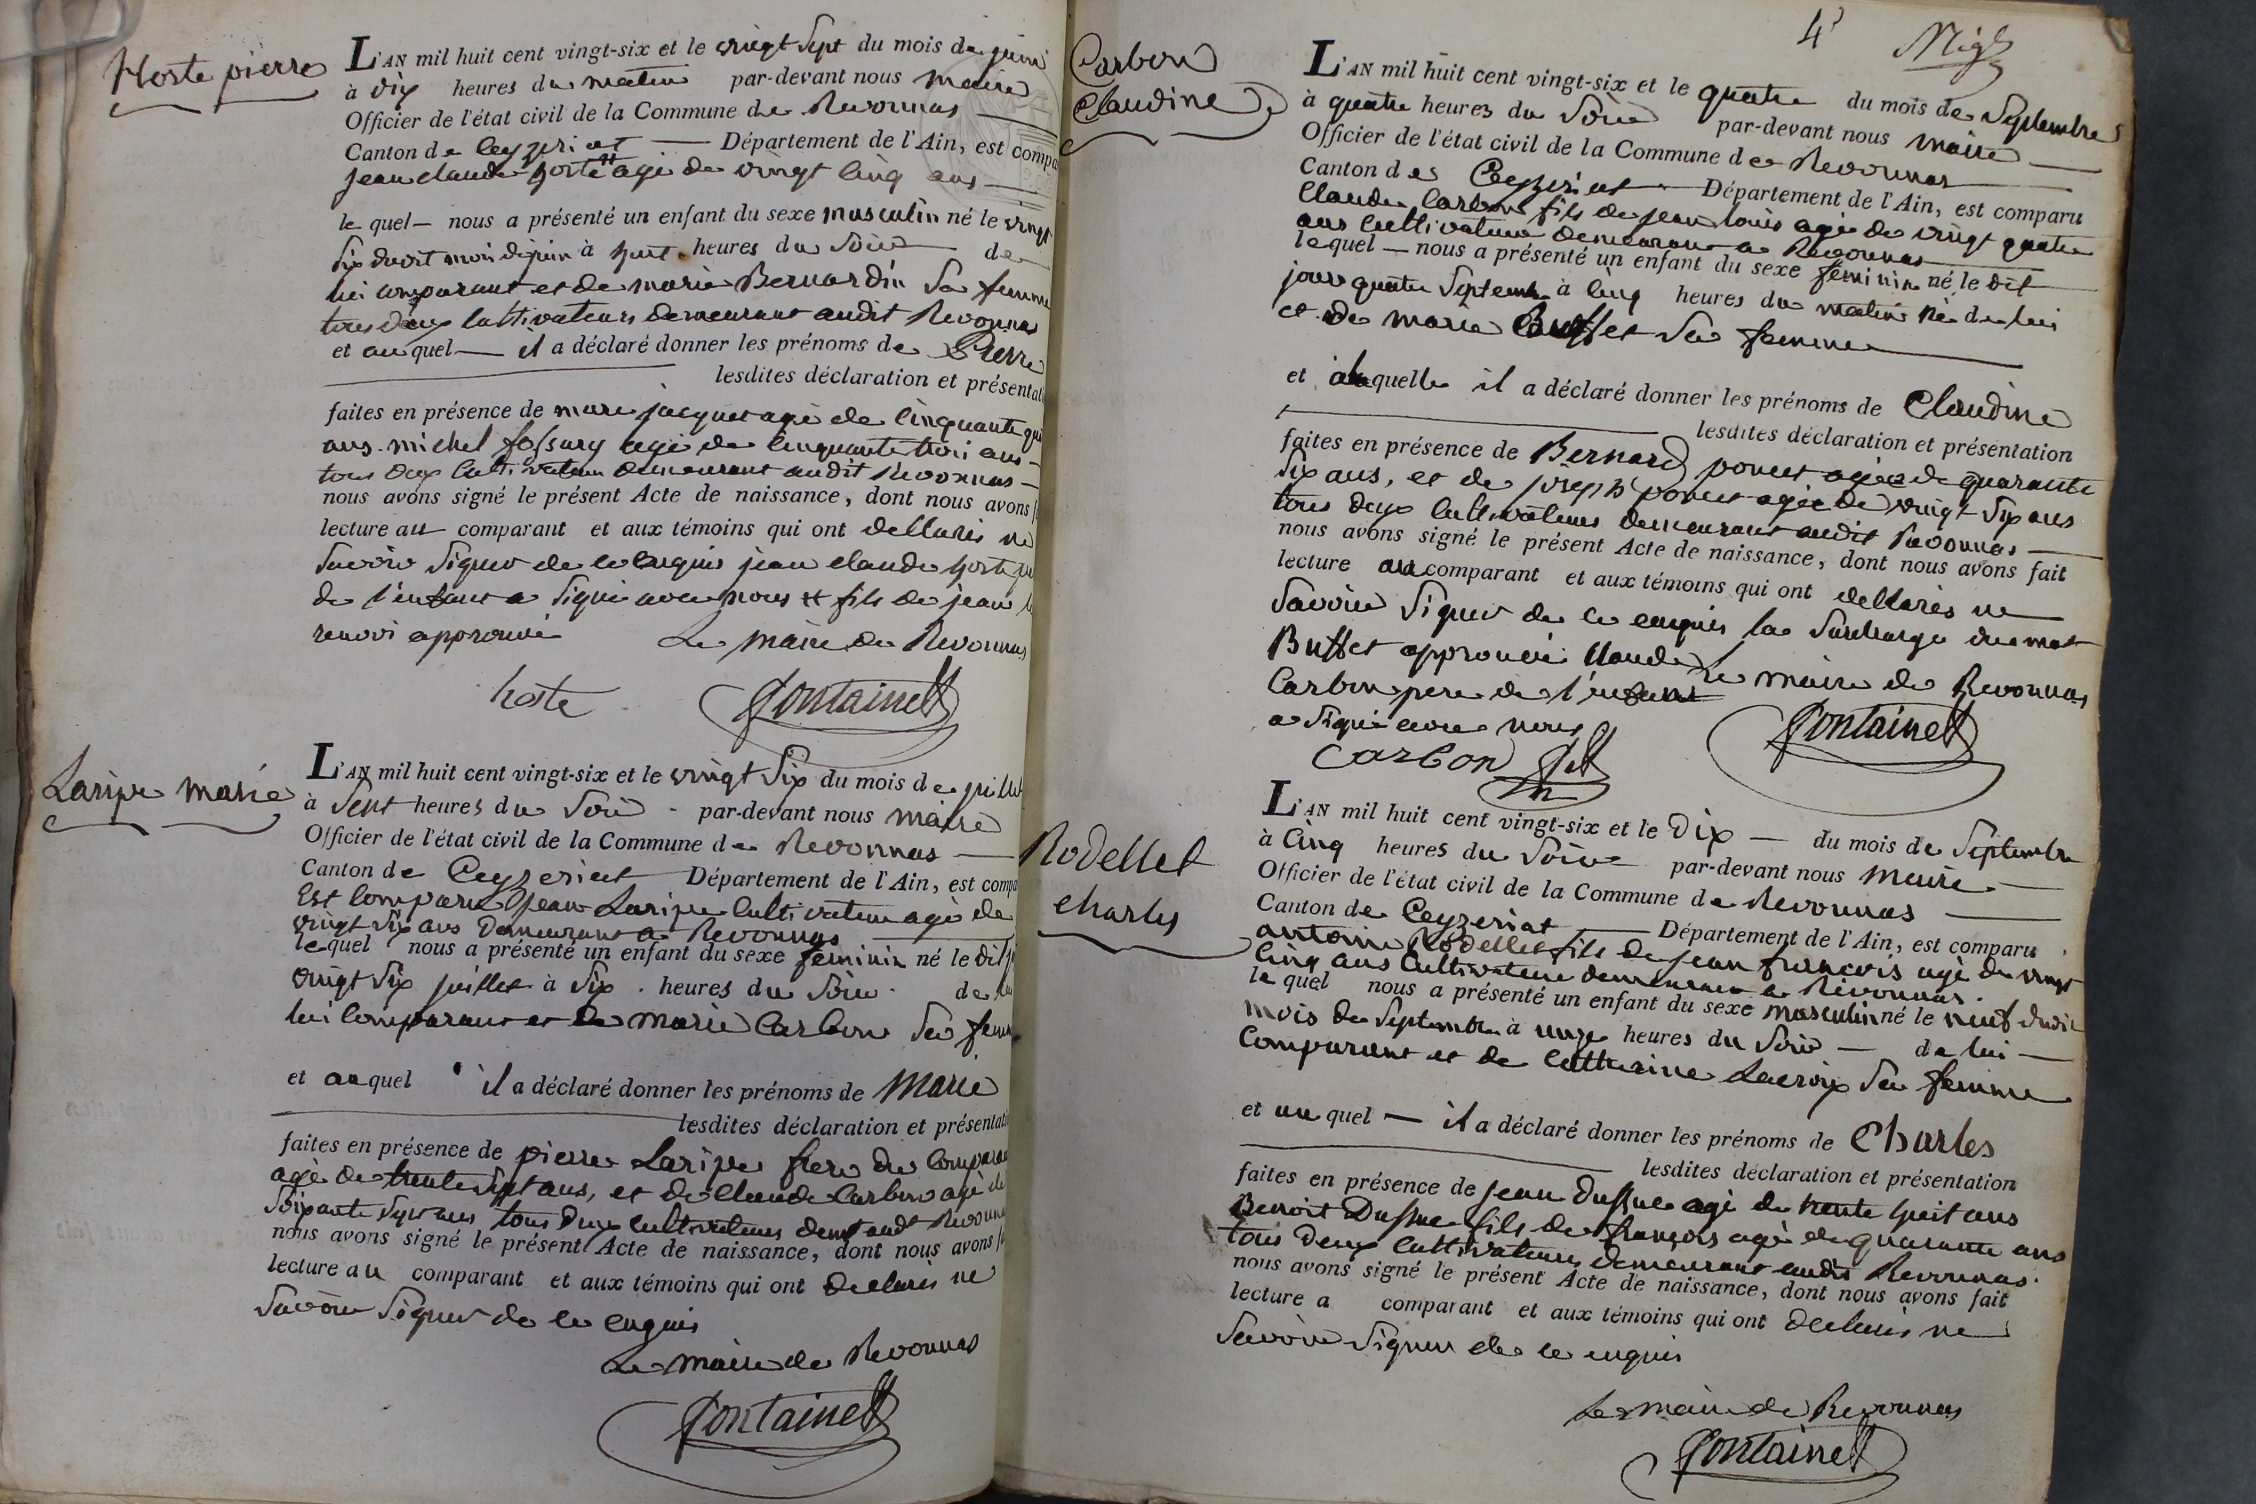 Horte pierre
L'AN mil huit cent vingt-six et le vingt Sept du mois de juin
à dix heures du matin par-devant nous maire
Officier de l'état civil de la Commune de Revonnas
Canton de Ceyzeriat Département de l'Ain, est compa
jean claude horte agé de vingt cinq ans
le quel nous a présenté un enfant du sexe masculin né le vingt
Six dudit moi de juin à huit heures du Soir de
lui comparant et de marie Bernardin Sa femme
tous deux cultivateurs demeurant audit Revonnas
et au quel il a déclaré donner les prénoms de Pierre
lesdites déclaration et présentat
faites en présence de marc jacquet agé de cinquante
ans. michel agé de cinquante trois ans
tous deux cultivateurs demeurant audit Revonnas
nous avons signé le présent Acte de naissance, dont nous avons f
lecture au comparant et aux témoins qui ont dellarés ne
Savoir Signer de ce enquis jean claude horte
de l'enfant a Signé avec nous # fils de jean
renvoi approuvé Le maire de Revonnas
horte fontainet
Laripe marie
L'AN mil huit cent vingt-six et le vingt Six du mois de juillet
à Sept heures du Soir par-devant nous maire
Officier de l'état civil de la Commune de Revonnas
Canton de Ceyzeriat Département de l'Ain, est compa
Est comparu jean Laripe cultivateur agé de
vingt Six ans demeurant a Revonnas
le quel nous a présenté un enfant du sexe feminin né le dit
vingt Six juillet à Six heures du Soir de
lui comparant et de marie Carbon Sa femme
et au quel il a déclaré donner les prénoms de Marie
lesdites déclaration et présentati
faites en présence de pierre Laripe frere du comparant
agé de trente Sept ans, et de Claude Carbon agé de
Soixante Sept ans tous deux cultivateurs demt audt Revonnas
nous avons signé le présent Acte de naissance, dont nous avons f
lecture au comparant et aux témoins qui ont declarés ne
Savoir Signer de ce enquis
Le maire de Revonnas
fontainet
4
Carbon
Claudine
L'AN mil huit cent vingt-six et le quatre du mois de Septembre
à quatre heures du Soir par-devant nous maire
Officier de l'état civil de la Commune de Revonnas
Canton de Ceyzeriat Département de l'Ain, est comparu
Claude Carbon fils de jean louis agé de vingt quatre
ans Cultivateur demeurant a Revonnas
le quel nous a présenté un enfant du sexe feminin né le dit
jour quatre Septembre à cinq heures du matin né de lui
et de marie Buffet Sa femme
et à laquelle il a déclaré donner les prénoms de Claudine
lesdites déclaration et présentation
faites en présence de Bernard poncet agée de quarante
Six ans, et de joseph poncet agée de vingt Six ans
tous deux cultivateurs demeurant audit Revonnas
nous avons signé le présent Acte de naissance, dont nous avons fait
lecture au comparant et aux témoins qui ont dellarés ne
Savoir Signer de ce enquis la Surcharge du mot
Buffet approuvée Claude Le maire de Revonnas
Carbon pere de l'enfant
a Signé avec nous fontainet
Carbon
Rodellet
charles
L'AN mil huit cent vingt-six et le Dix du mois de Septembre
à Cinq heures du Soir par-devant nous maire
Officier de l'état civil de la Commune de Revonnas
Canton de Ceyzeriat Département de l'Ain, est comparu
antoine Rodellet fils de jean francois agé de vingt
Cinq ans Cultivateur demeurant a Revonnas.
le quel nous a présenté un enfant du sexe masculin né le neuf dudit
mois de Septembre à unze heures du Soir de lui
Comparant et de Catherine Lacroix Sa femme
et au quel il a déclaré donner les prénoms de Charles
lesdites déclaration et présentation
faites en présence de jean agé de trente huit ans
Benoit fils de françois agé de quarante ans
tous deux cultivateurs demeurant audit Revonnas.
nous avons signé le présent Acte de naissance, dont nous avons fait
lecture a comparant et aux témoins qui ont declarés ne
Savoir Signer de ce enquis
Le maire de Revonnas
fontainet